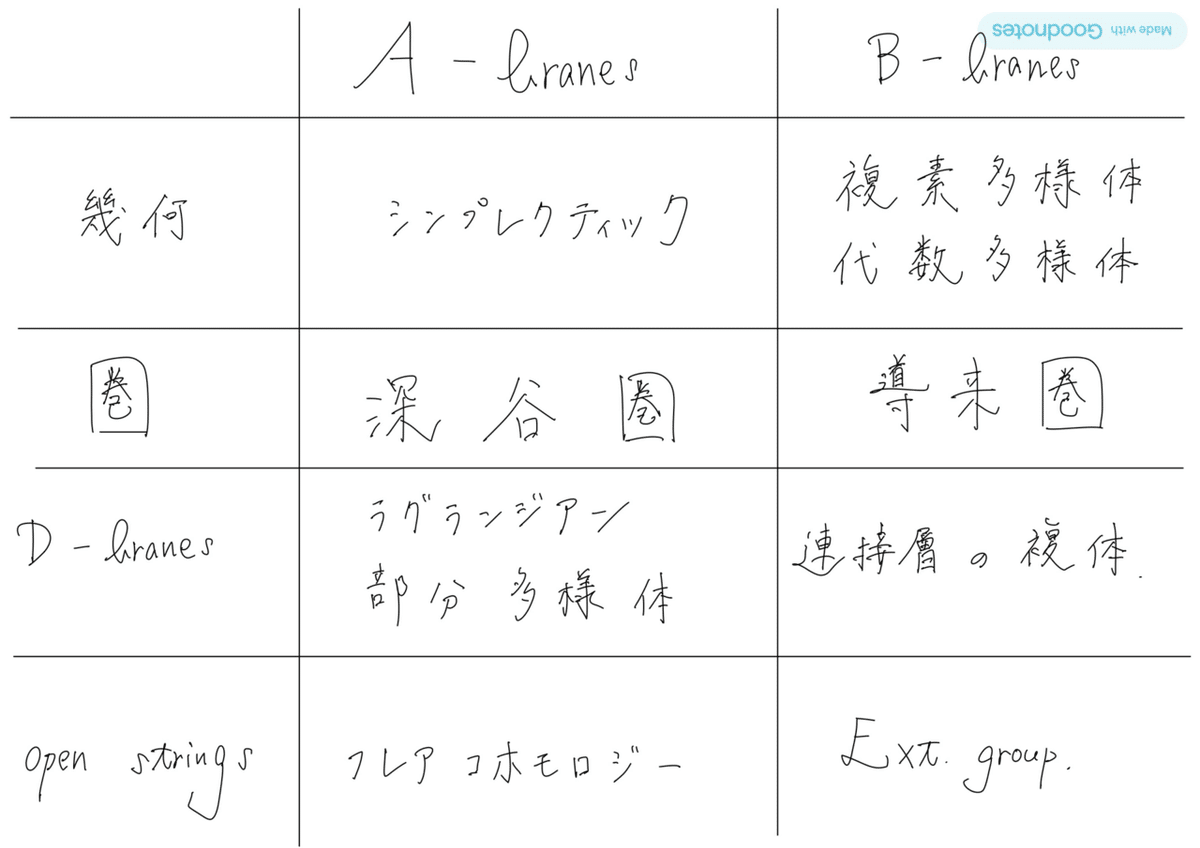 Made with Goodnotes
A - branes
B - branes
幾何
シンプレクティック
複素多様体
代数多様体
圏
深谷圏
導来圏
D - branes
ラグランジアン
部分多様体
連接層の複体.
open strings
フレアコホモロジー
Ext. group.